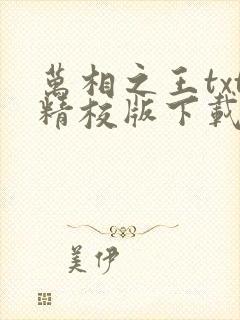 萬相之王txt
精校版下載
美伊